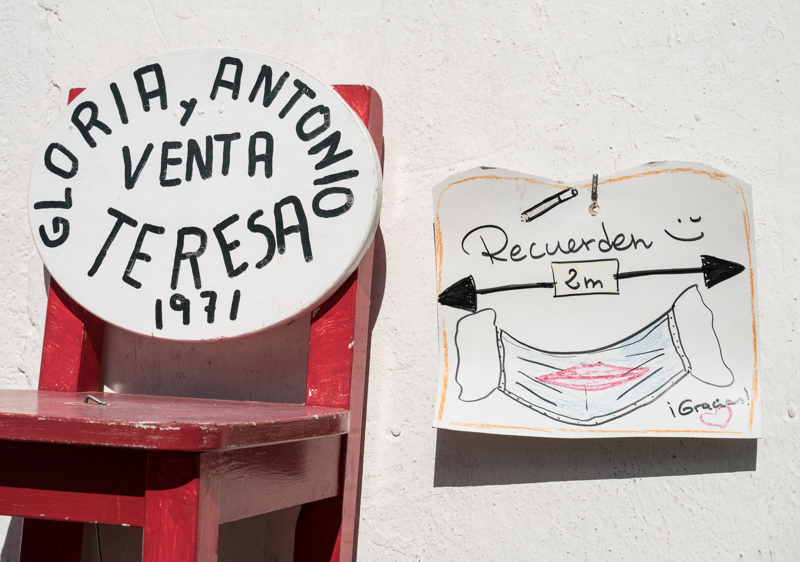 GLORIA y ANTONIO
VENTA
TERESA
1971
Recuerden
2m
¡Gracias!